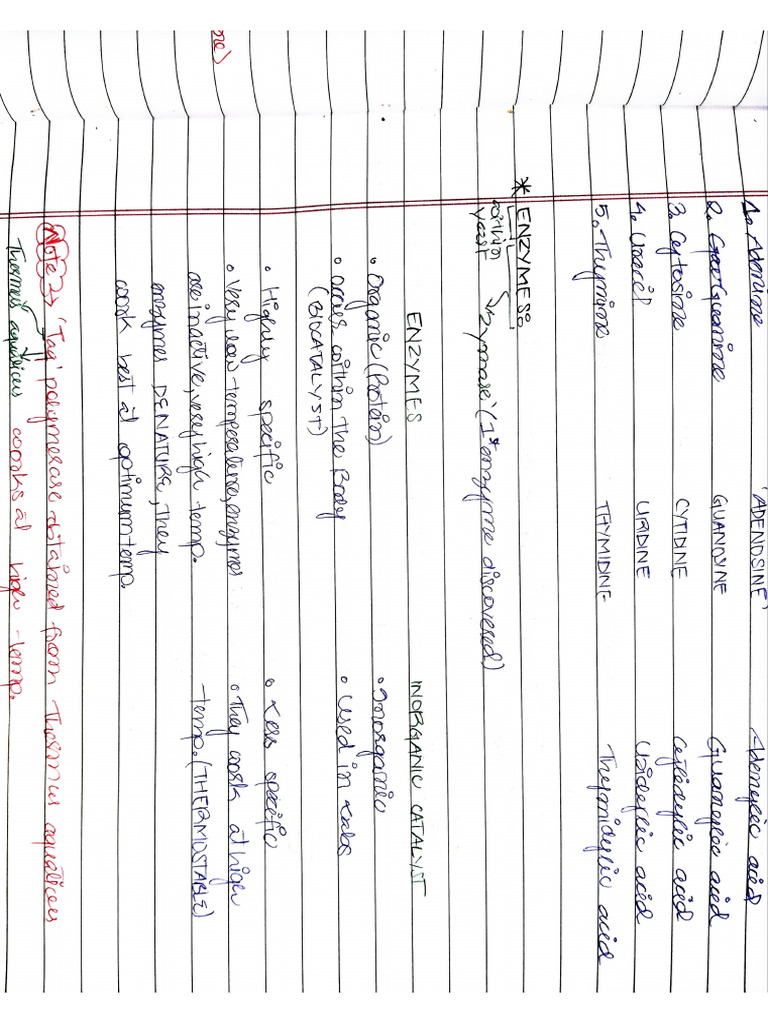 1. Adenine 'ADENOSINE' Adenylic acid
2. Guanine GUANOSINE Guanylic acid
3. Cytosine CYTIDINE Cytidylic acid
4. Uracil URIDINE Uridylic acid
5. Thymine THYMIDINE Thymidylic acid
* ENZYMES:
within
yeast
→ 'Zymase' (1st enzyme discovered)
ENZYMES INORGANIC CATALYST
• Organic (Protein) • Inorganic
• occurs within the Body • Used in Labs
(BIOCATALYST)
• Highly specific • Less specific
• Very low temperature, enzymes • They work at high
are inactive, very high temp. temp. (THERMOSTABLE)
enzymes DENATURE, they
work best at optimum temp.
Note 2 → 'Taq' polymerase obtained from Thermus aquaticus
Thermus aquaticus works at high temp.